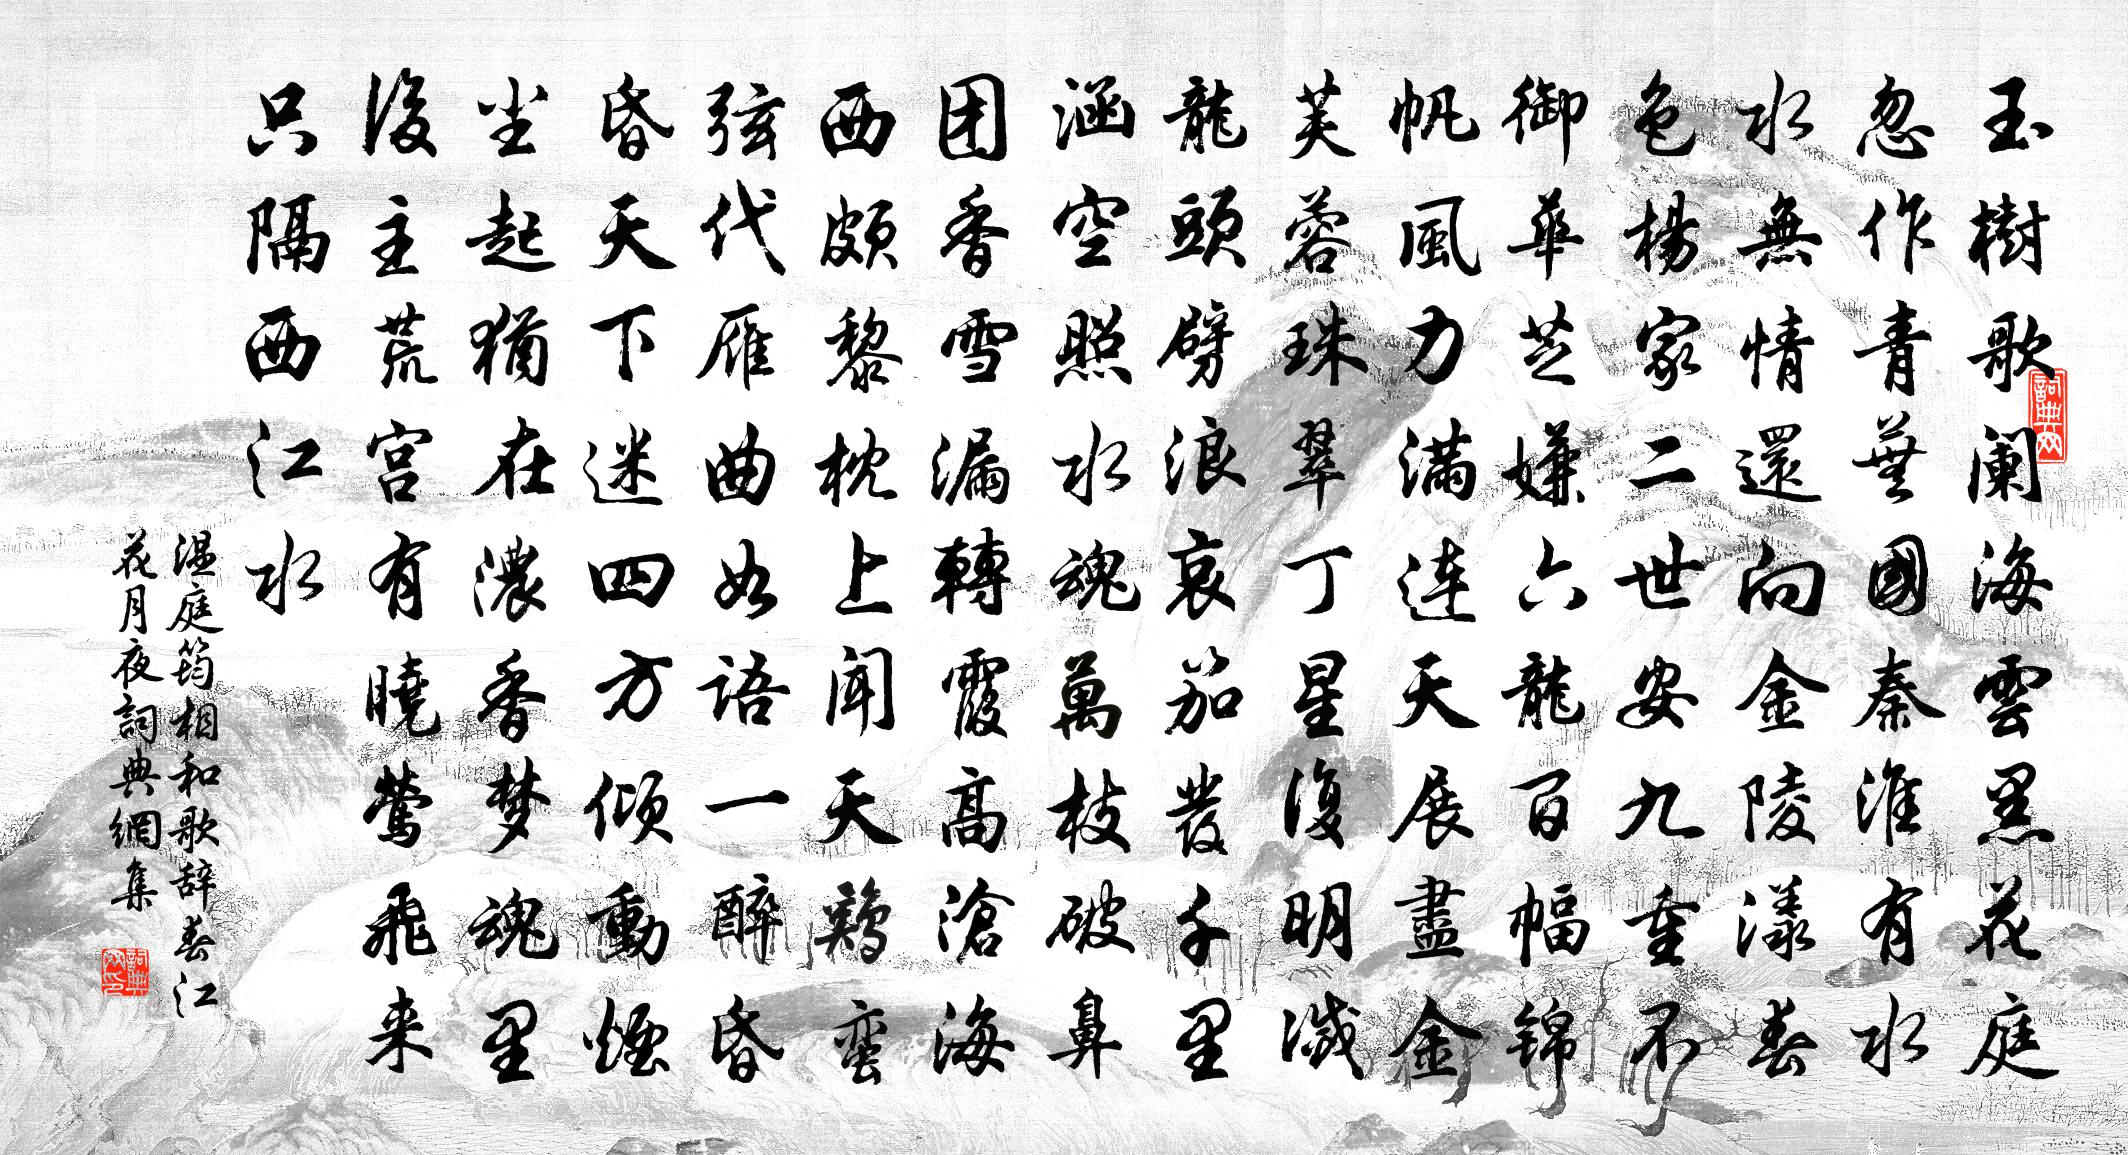 玉樹歌阑海雲黑花庭
忽作青蕪國秦淮有水
水無情還向金陵漾春
色楊家二世安九重不
御華芝嫌六龍百幅錦
帆風力满连天展盡金
芙蓉珠翠丁星復明滅
龍頭劈浪哀笳發千里
涵空照水魂萬枝破鼻
团香雪漏轉霞高滄海
西颇黎枕上闻天鷄蛮
弦代雁曲如語一醉昏
昏天下迷四方倾動煙
尘起猶在濃香梦魂里
後主荒宫有曉莺飛来
只隔西江水
温庭筠相和歌辞春江
花月夜詞典網集
詞典网
詞典网印